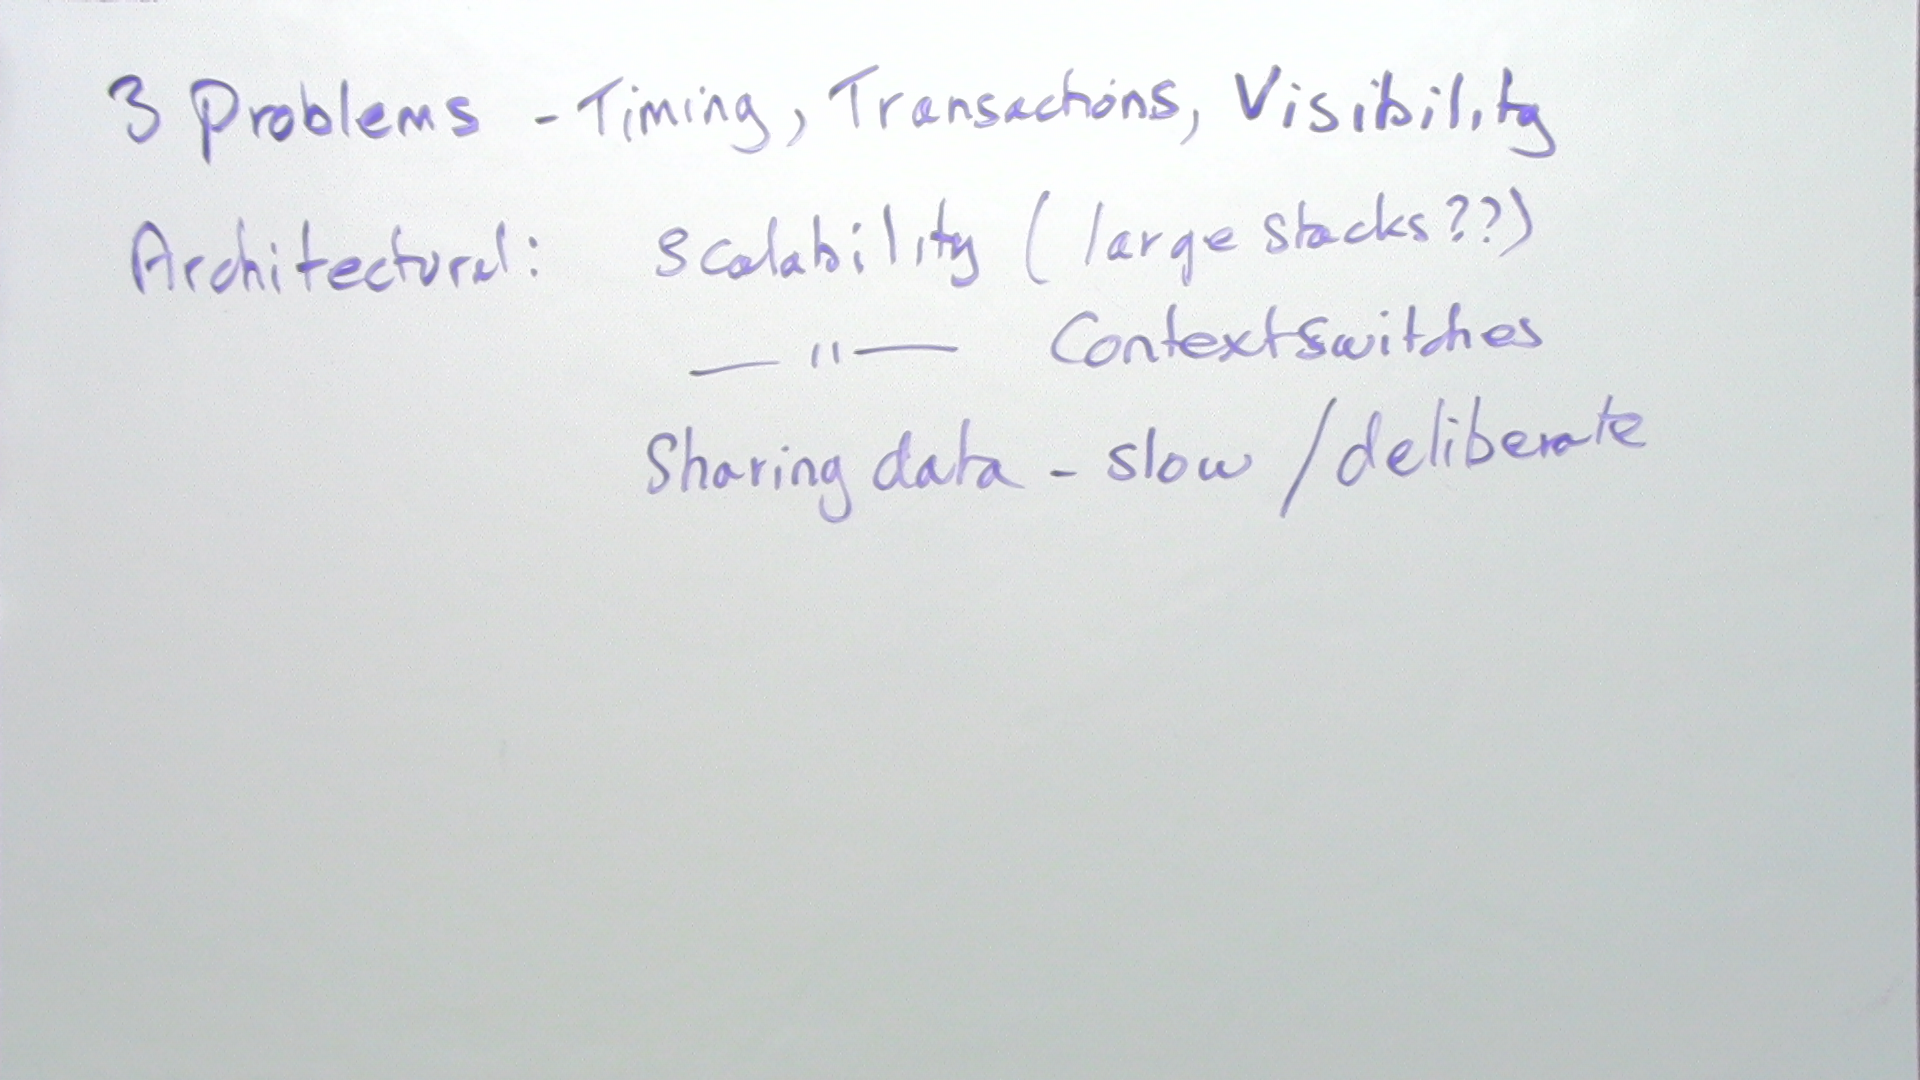 3 Problems - Timing, Transactions, Visibility
Architectural: Scalability (large stacks??)
— " — Context switches
Sharing data - slow / deliberate